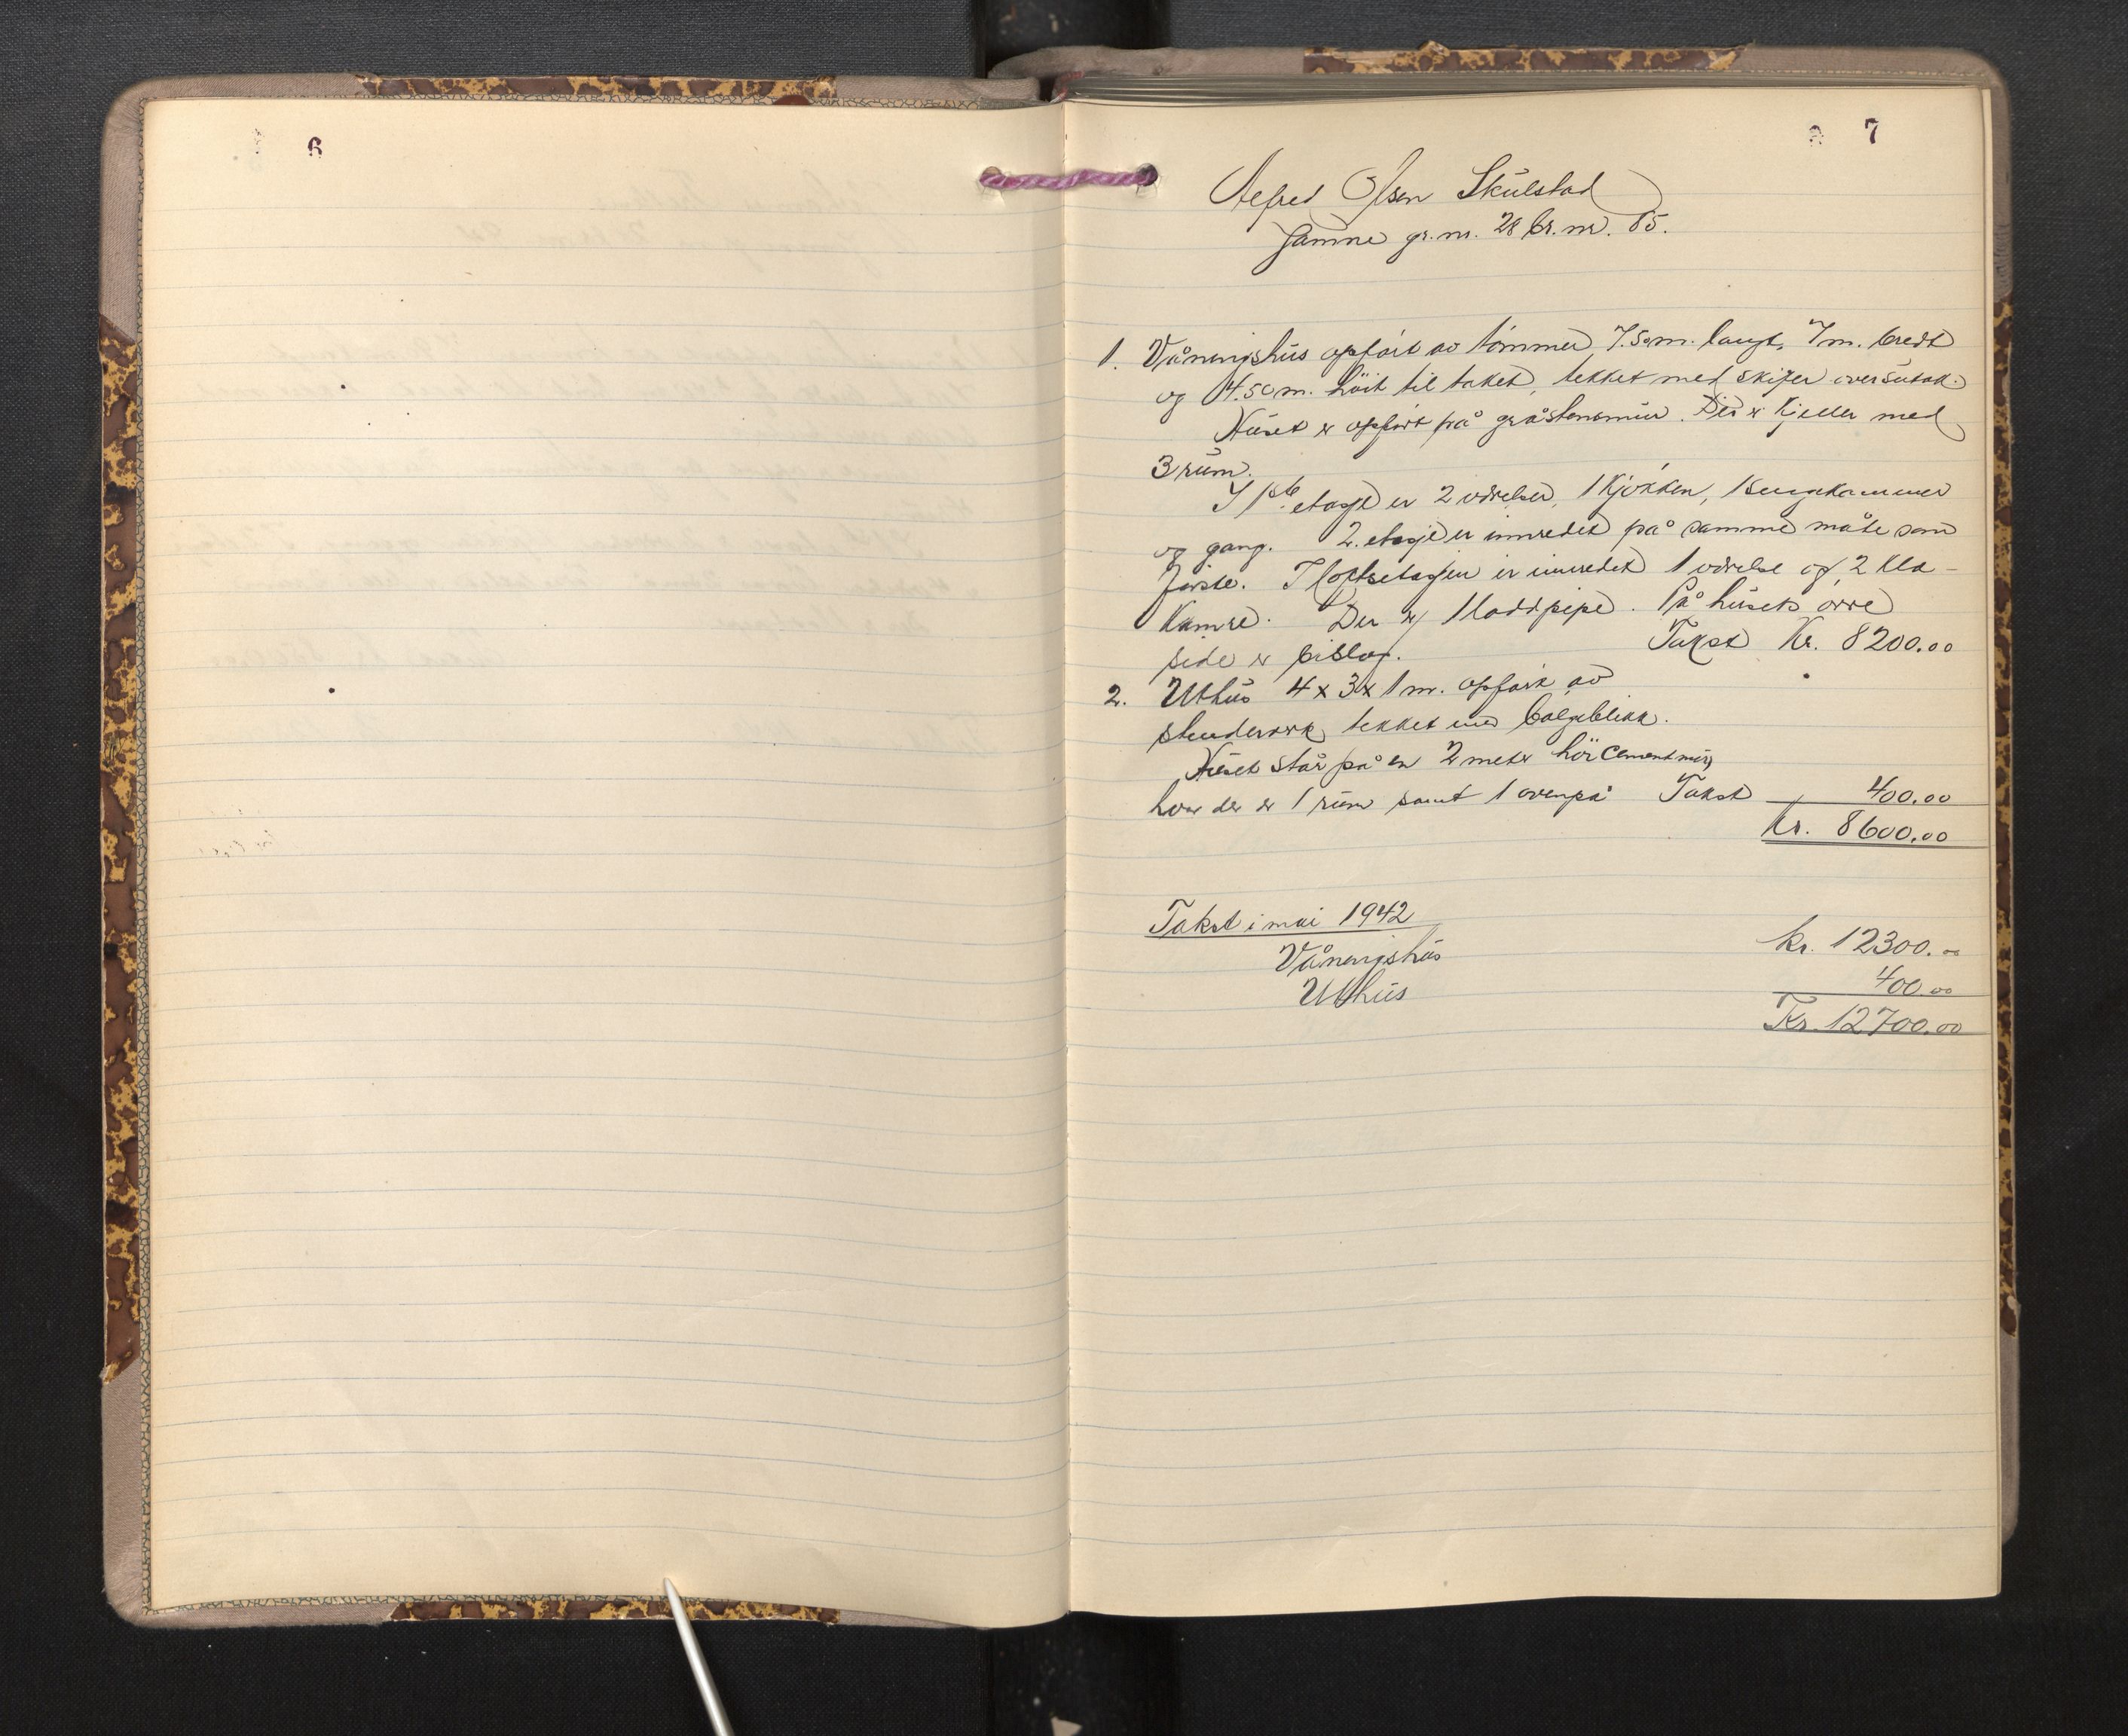 6
7
Alfred Olsen Skulstad
Gamne gr. nr. 28 br. nr. 85.
1. Våningshus opført av tømmer 7.50 m. langt, 7 m. bredt
og 4.50 m. høit til taket, tekket med skifer over sutak.
Huset er opført på gråstensmur. Der er Kjeller med
3 rum.
I 1ste etage er 2 værelser, 1 Kjøkken, 1 sengekammer
og gang. 2. etage er innredet på samme måte som
første. I loftsetagen er innredet 1 værelse og 2 kla-
kamre. Der er 1 loddpipe. På husets øvre
side er bislag. Takst Kr. 8200.00
2. Uthus 4 x 3 x 1 m. opført av
stenderverk tekket med bølgeblikk.
Huset står på en 2 meter høi Cementmur,
hvor der er 1 rum samt 1 ovenpå Takst 400.00
Kr. 8600.00
Takst i mai 1942
Våningshus kr. 12300.00
Uthus 400.00
Kr. 12700.00